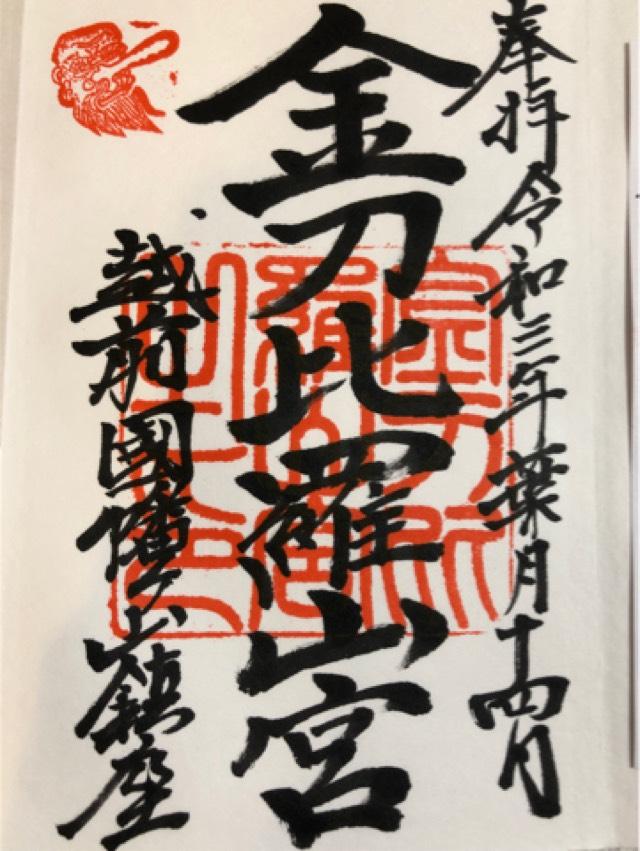 奉拝 令和三年葉月十四日
金刀比羅山宮
越前國山鎮座